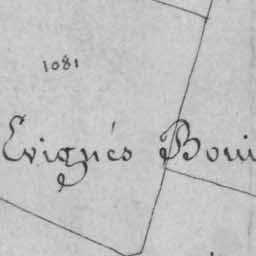 1081
Evignés Boui